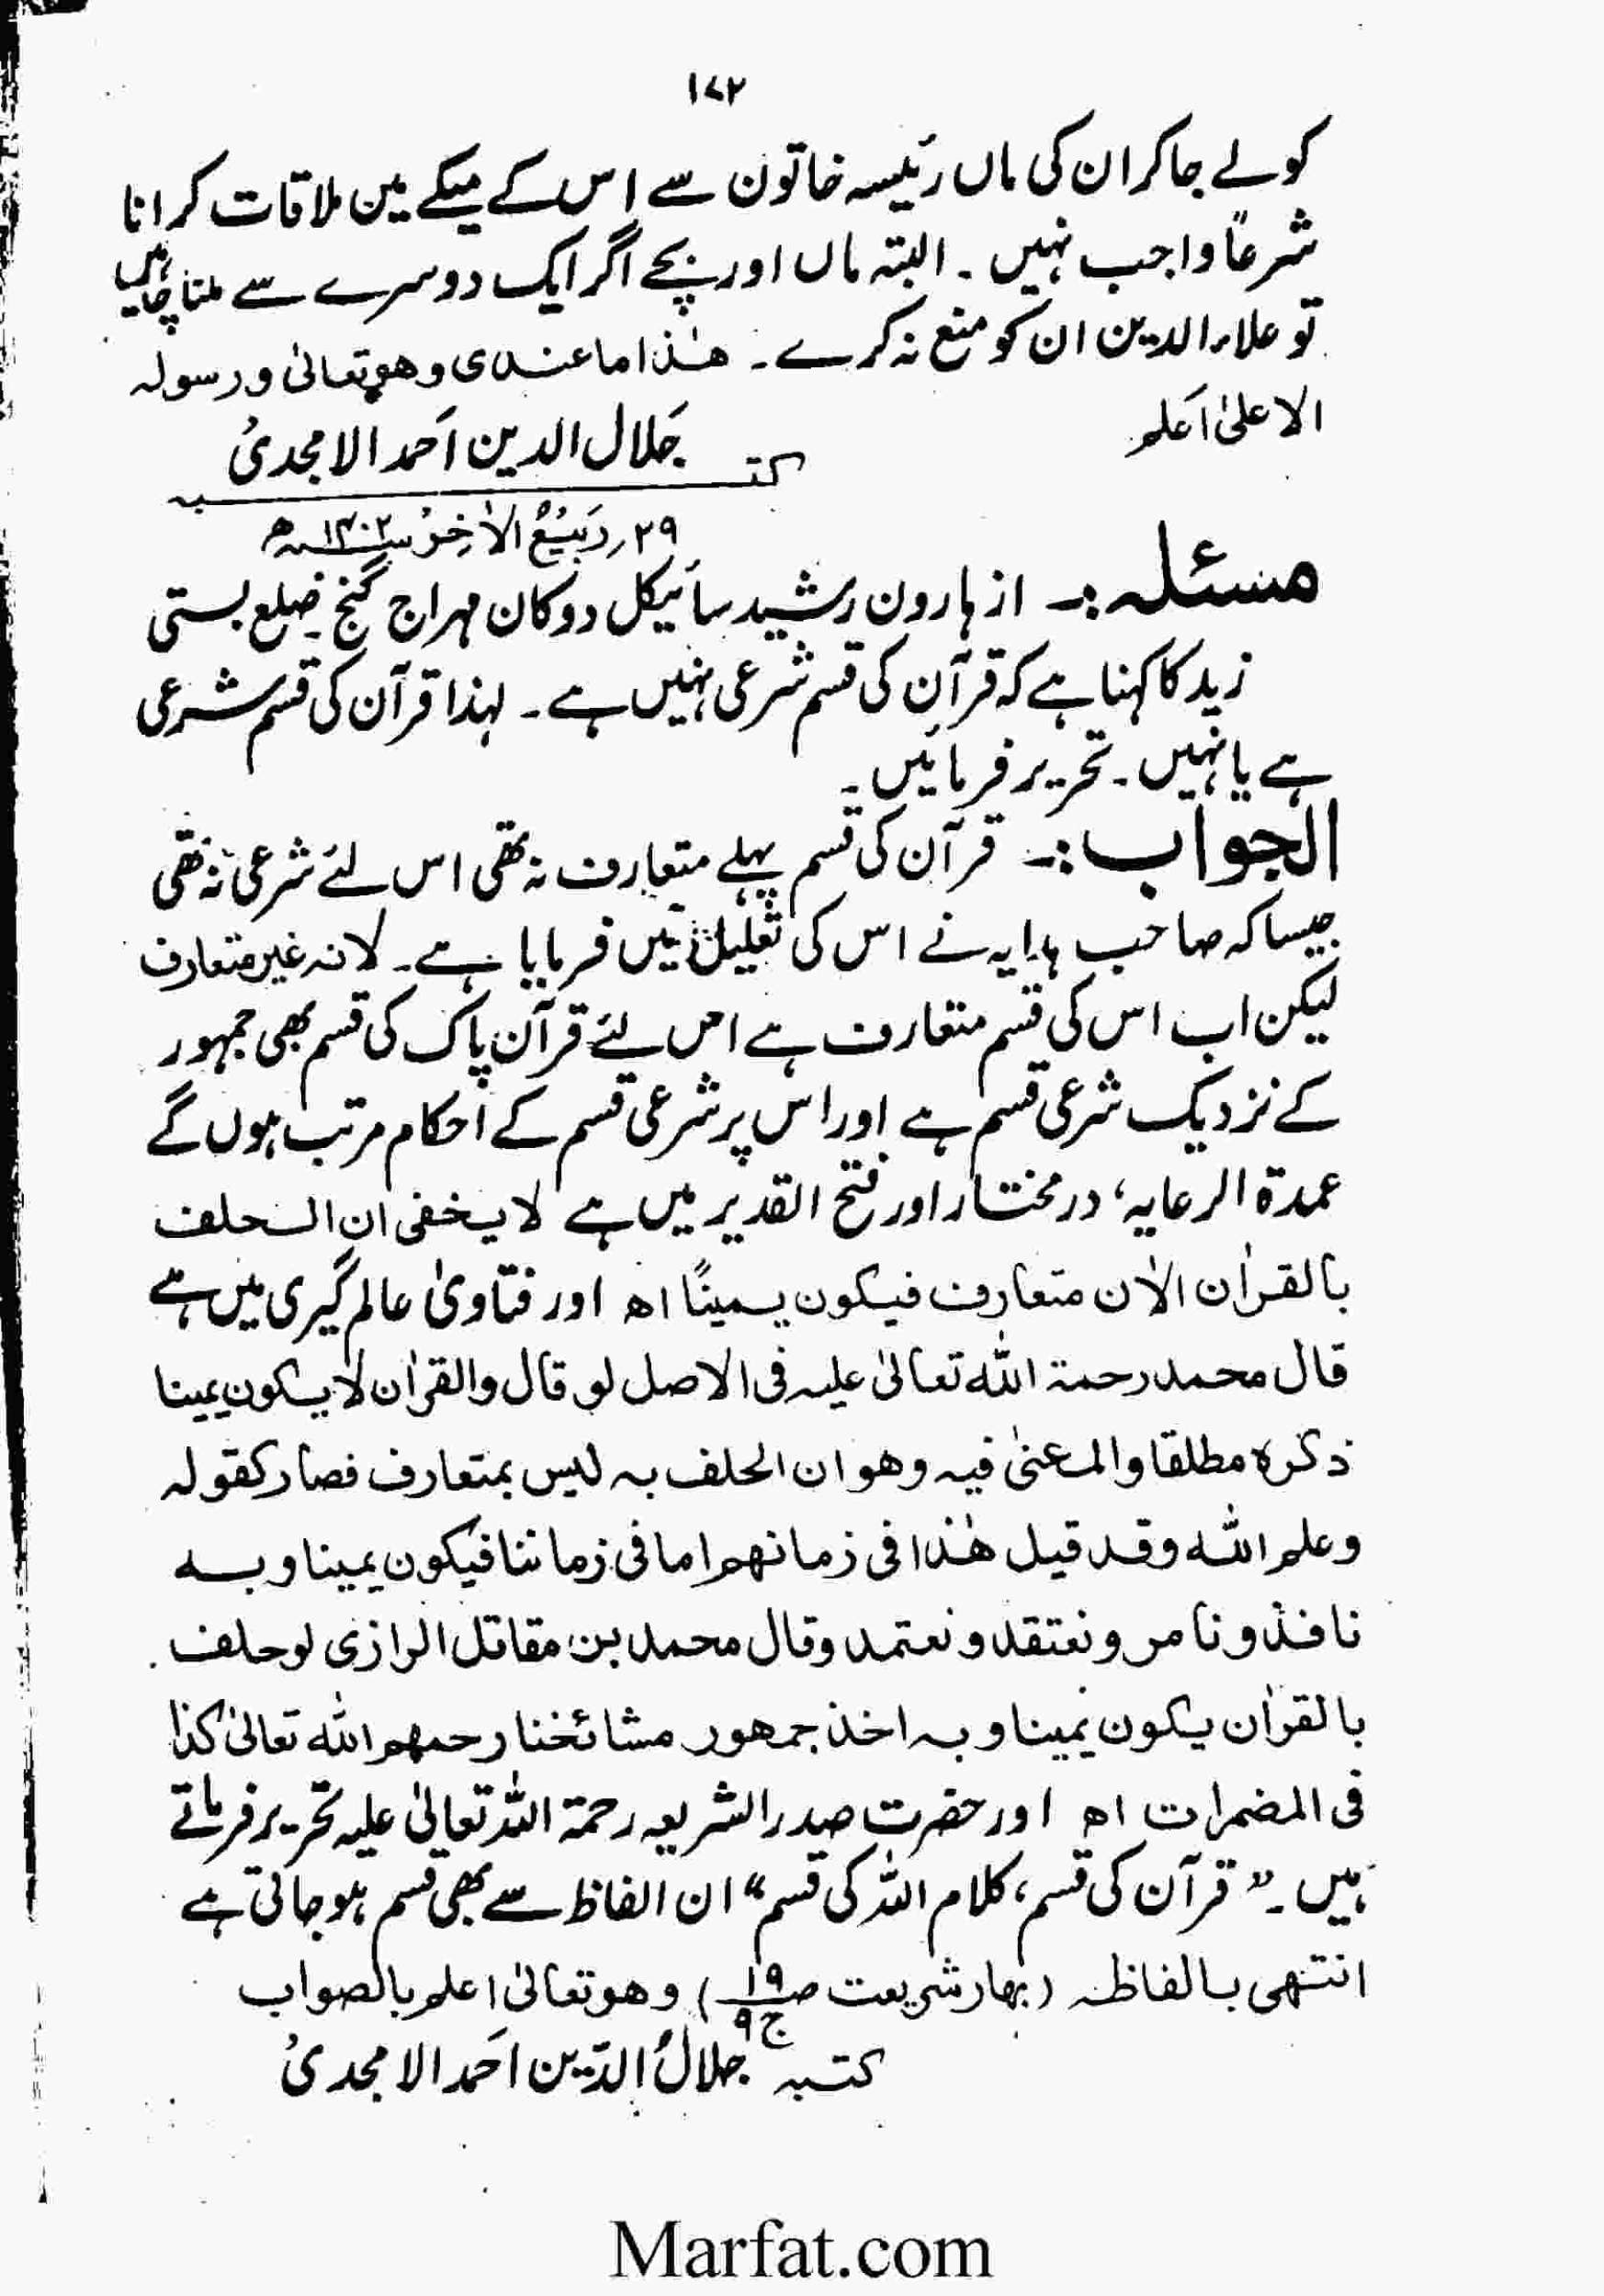 ۱۷۲
کو لے جا کر ان کی ماں رئیسہ خاتون سے اس کے میکے میں ملاقات کرانا
شرعاً واجب نہیں ۔ البتہ ماں اور بچے اگر ایک دوسرے سے ملنا چاہیں
تو علاء الدین ان کو منع نہ کرے ۔ ھٰذا ما عندی وھو تعالیٰ ورسولہ
الاعلیٰ اَعلم
کتبہ جَلال الدین احَمد الامجدیُ
۲۹ ؍ رَبیعُ الاٰخِرُ ۱۴۰۲ھ
مسئلہ :۔ از ہارون رشید سائیکل دوکان مہراج گنج ۔ ضلع بستی
زید کا کہنا ہے کہ قرآن کی قسم شرعی نہیں ہے ۔ لہذا قرآن کی قسم شرعی
ہے یا نہیں ۔ تحریر فرمائیں ۔
الجواب :۔ قرآن کی قسم پہلے متعارف نہ تھی اس لئے شرعی نہ تھی
جیسا کہ صاحب ہدایہ نے اس کی تعلیل میں فرمایا ہے ۔ لانہ غیر متعارف
لیکن اب اس کی قسم متعارف ہے اس لئے قرآن پاک کی قسم بھی جمہور
کے نزدیک شرعی قسم ہے اور اس پر شرعی قسم کے احکام مرتب ہوں گے
عمدۃ الرعایہ، درمختار اور فتح القدیر میں ہے لا یخفی ان الحلف
بالقراٰن الاٰن متعارف فیکون یمینًا اھ اور فتاویٰ عالم گیری میں ہے
قال محمد رحمۃ اللہ تعالیٰ علیہ فی الاصل لو قال والقراٰن لا یکون یمینا
ذکرہ مطلقا والمعنیٰ فیہ وھو ان الحلف بہ لیس بمتعارف فصار کقولہ
وعلم اللہ وقد قیل ھٰذا فی زمانھم اما فی زماننا فیکون یمینا وبہ
ناخذ ونامر ونعتقد ونعتمد وقال محمد بن مقاتل الرازی لو حلف
بالقراٰن یکون یمینا وبہ اخذ جمھور مشائخنا رحمھم اللہ تعالیٰ کذا
فی المضمرات اھ اور حضرت صدر الشریعہ رحمۃ اللہ تعالیٰ علیہ تحریر فرماتے
ہیں ۔ ”قرآن کی قسم، کلام اللہ کی قسم“ ان الفاظ سے بھی قسم ہو جاتی ہے
انتھی بالفاظہ (بہار شریعت ص۱۹ ج۹) وھو تعالیٰ اعلم بالصواب
کتبہ جلالُ الدّین احَمد الامجدیُ
Marfat.com